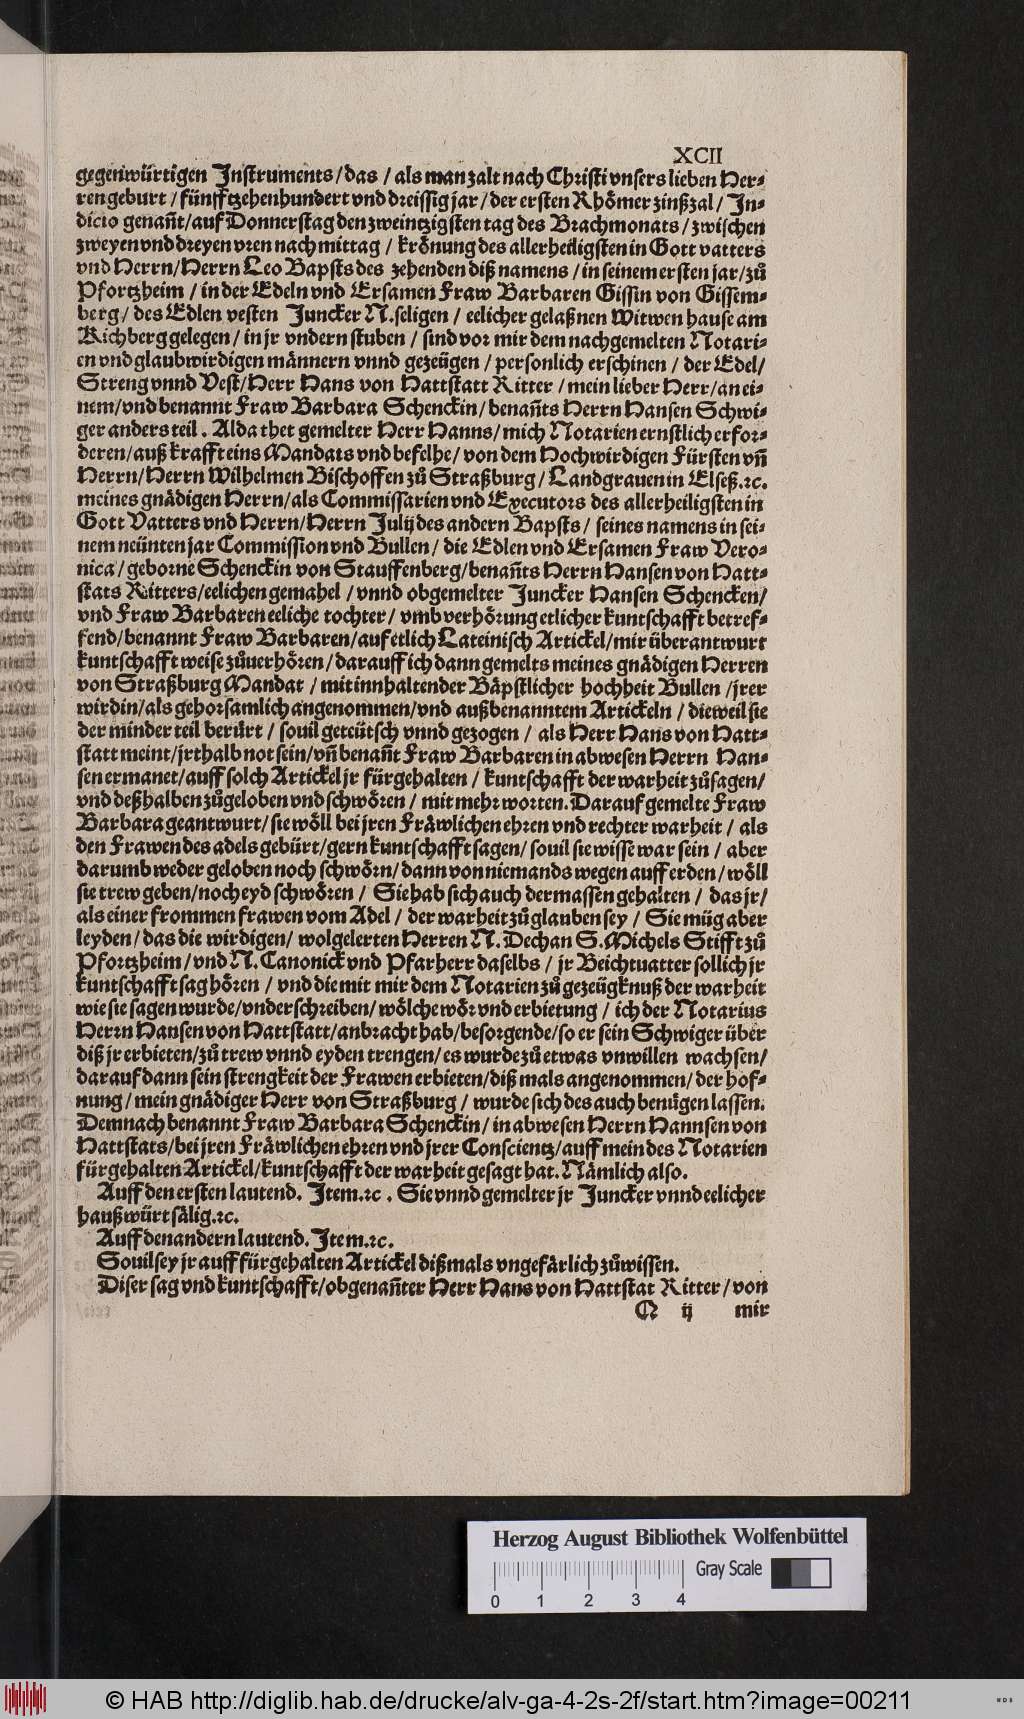 XCII
gegenwürtigen Instruments/das/als man zalt nach Christi vnsers lieben Her-
ren geburt/fünfftzehenhundert vnd dreissig jar/der ersten Rhömer zinßzal/In-
dicio genañt/auf Donnerstag den zweintzigsten tag des Brachmonats/zwischen
zweyen vnd dreyen vren nach mittag/krönung des allerheiligsten in Gott vatters
vnd Herrn/Herrn Leo Bapsts des zehenden diß namens/in seinem ersten jar/zů
Pfortzheim/in der Edeln vnd Ersamen Fraw Barbaren Gissin von Gissem-
berg/des Edlen vesten Juncker N. seligen/eelicher gelaßnen Witwen hause am
Kichberg gelegen/in jr vndern stuben/sind vor mir dem nachgemelten Notari-
en vnd glaubwirdigen männern vnnd gezeügen/personlich erschinen/der Edel/
Streng vnnd Vest/Herr Hans von Hattstatt Ritter/mein lieber Herr/an ei-
nem/vnd benannt Fraw Barbara Schenckin/benañts Herrn Hansen Schwi-
ger anders teil. Alda thet gemelter Herr Hanns/mich Notarien ernstlich erfor-
deren/auß krafft eins Mandats vnd befelhe/von dem Hochwirdigen Fürsten vñ
Herrn/Herrn Wilhelmen Bischoffen zů Straßburg/Landgrauen in Elseß.ꝛc.
meines gnädigen Herrn/als Commissarien vnd Executors des allerheiligsten in
Gott Vatters vnd Herrn/Herrn Julij des andern Bapsts/seines namens in sei-
nem neünten jar Commission vnd Bullen/die Edlen vnd Ersamen Fraw Vero-
nica/geborne Schenckin von Stauffenberg/benañts Herrn Hansen von Hatt-
stats Ritters/eelichen gemahel/vnnd obgemelter Juncker Hansen Schencken/
vnd Fraw Barbaren eeliche tochter/vmb verhörung etlicher kuntschafft betref-
fend/benannt Fraw Barbaren/auf etlich Lateinisch Artickel/mir überantwurt
kuntschafft weise zůuerhören/darauff ich dann gemelts meines gnädigen Herren
von Straßburg Mandat/mit innhaltender Bäpstlicher hochheit Bullen/jrer
wirdin/als gehorsamlich angenommen/vnd außbenanntem Artickeln/dieweil sie
der minder teil berürt/souil geteütsch vnnd gezogen/als Herr Hans von Hatt-
statt meint/jrthalb not sein/vñ benañt Fraw Barbaren in abwesen Herrn Han-
sen ermanet/auff solch Artickel jr fürgehalten/kuntschafft der warheit zůsagen/
vnd deßhalben zůgeloben vnd schwören/mit mehr worten. Darauf gemelte Fraw
Barbara geantwurt/sie wöll bei jren Fräwlichen ehren vnd rechter warheit/als
den Frawen des adels gebürt/gern kuntschafft sagen/souil sie wisse war sein/aber
darumb weder geloben noch schwörn/dann von niemands wegen auff erden/wöll
sie trew geben/noch eyd schwören/Sie hab sich auch dermassen gehalten/das jr/
als einer frommen frawen vom Adel/der warheit zů glauben sey/Sie müg aber
leyden/das die wirdigen/wolgelerten Herren N. Dechan S. Michels Stifft zů
Pfortzheim/vnd N. Canonick vnd Pfarherr daselbs/jr Beichtuatter sollich jr
kuntschafft sag hören/vnd die mit mir dem Notarien zů gezeügknuß der warheit
wie sie sagen wurde/vnderschreiben/wölche wör vnd erbietung/ich der Notarius
Herrn Hansen von Hattstatt/anbracht hab/besorgende/so er sein Schwiger über
diß jr erbieten/zů trew vnnd eyden trengen/es wurde zů etwas vnwillen wachsen/
darauf dann sein strengkeit der Frawen erbieten/diß mals angenommen/der hof-
nung/mein gnädiger Herr von Straßburg/wurde sich des auch benügen lassen.
Demnach benannt Fraw Barbara Schenckin/in abwesen Herrn Hannsen von
Hattstats/bei jren Fräwlichen ehren vnd jrer Conscientz/auff mein des Notarien
fürgehalten Artickel/kuntschafft der warheit gesagt hat. Nämlich also.
Auff den ersten lautend. Item.ꝛc. Sie vnnd gemelter jr Juncker vnnd eelicher
haußwürt sälig.ꝛc.
Auff den andern lautend. Item.ꝛc.
Souil sey jr auff fürgehalten Artickel dißmals vngefärlich zůwissen.
Diser sag vnd kuntschafft/obgenañter Herr Hans von Hattstat Ritter/von
Q ij mir
Herzog August Bibliothek Wolfenbüttel
Gray Scale
0 1 2 3 4
© HAB http://diglib.hab.de/drucke/alv-ga-4-2s-2f/start.htm?image=00211